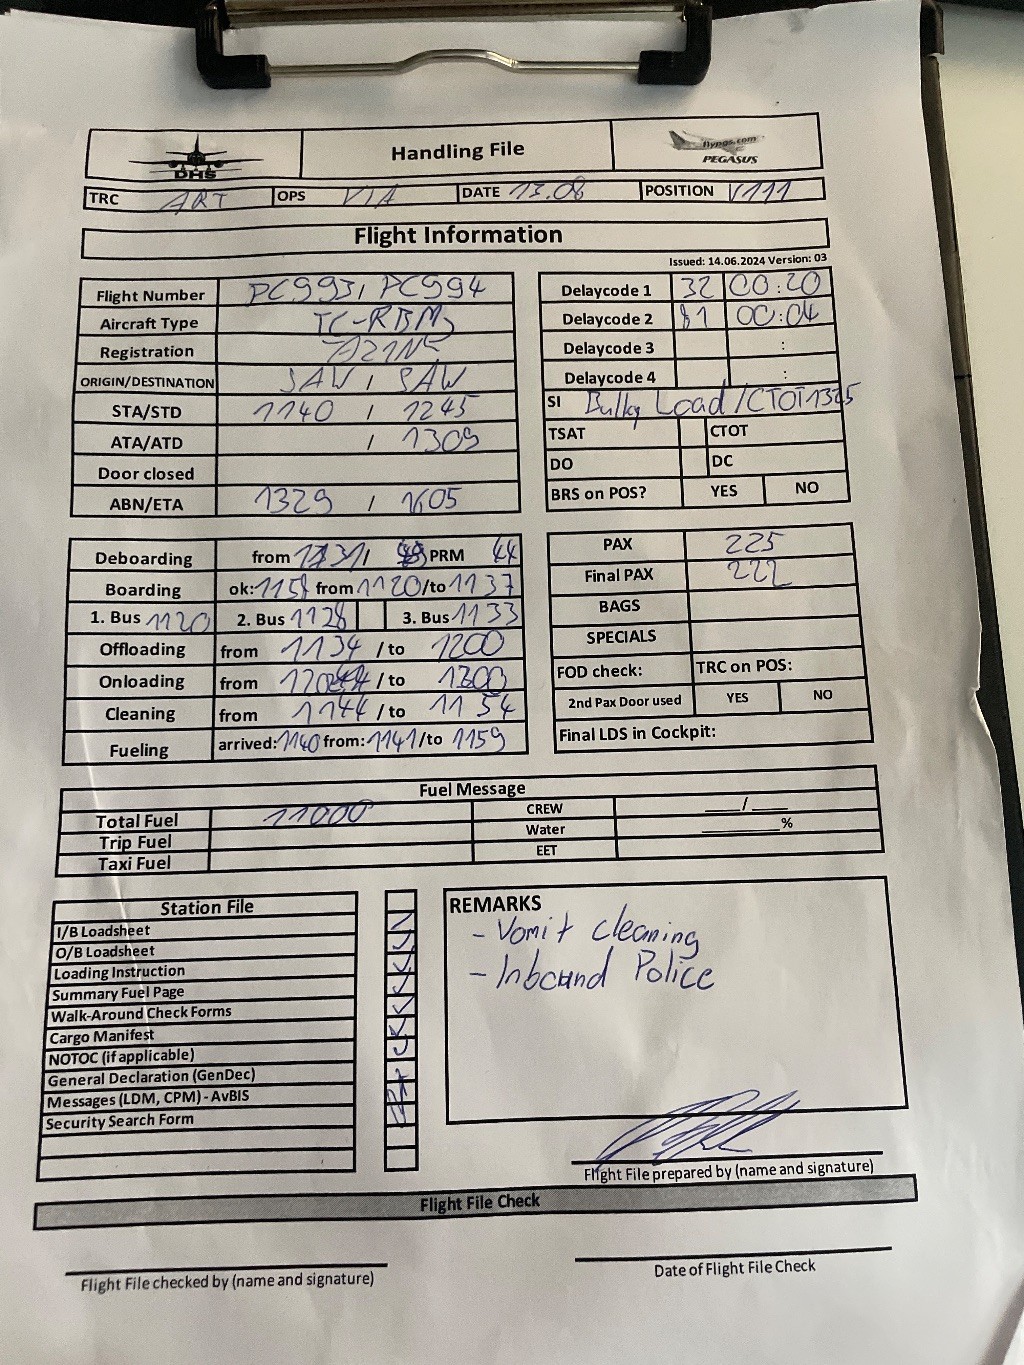 DHS
Handling File
flypgs.com
PEGASUS
TRC ART OPS VIA DATE 13.08 POSITION V111
Flight Information
Issued: 14.06.2024 Version: 03
Flight Number PC993 / PC994
Aircraft Type TC-RBM
Registration A21NE
ORIGIN/DESTINATION SAW / SAW
STA/STD 1140 / 1245
ATA/ATD / 1309
Door closed
ABN/ETA 1329 / 1605
Delaycode 1 32 00:20
Delaycode 2 81 00:04
Delaycode 3 :
Delaycode 4 :
SI Bulky Load /CTOT1325
TSAT CTOT
DO DC
BRS on POS? YES NO
Deboarding from / PRM 44
Boarding ok: from 1120/to 1137
1. Bus 1120 2. Bus 1128 3. Bus 1133
Offloading from 1134 / to 1200
Onloading from / to 1300
Cleaning from 1144 / to 1154
Fueling arrived: 1140 from: 1141/to 1159
PAX 225
Final PAX 222
BAGS
SPECIALS
FOD check: TRC on POS:
2nd Pax Door used YES NO
Final LDS in Cockpit:
Fuel Message
Total Fuel 11000 CREW ___/___
Trip Fuel Water ______%
Taxi Fuel EET
Station File
I/B Loadsheet
O/B Loadsheet
Loading Instruction
Summary Fuel Page
Walk-Around Check Forms
Cargo Manifest
NOTOC (if applicable)
General Declaration (GenDec)
Messages (LDM, CPM) - AvBIS
Security Search Form
REMARKS
- Vomit cleaning
- Inbound Police
Flight File prepared by (name and signature)
Flight File Check
Flight File checked by (name and signature)
Date of Flight File Check